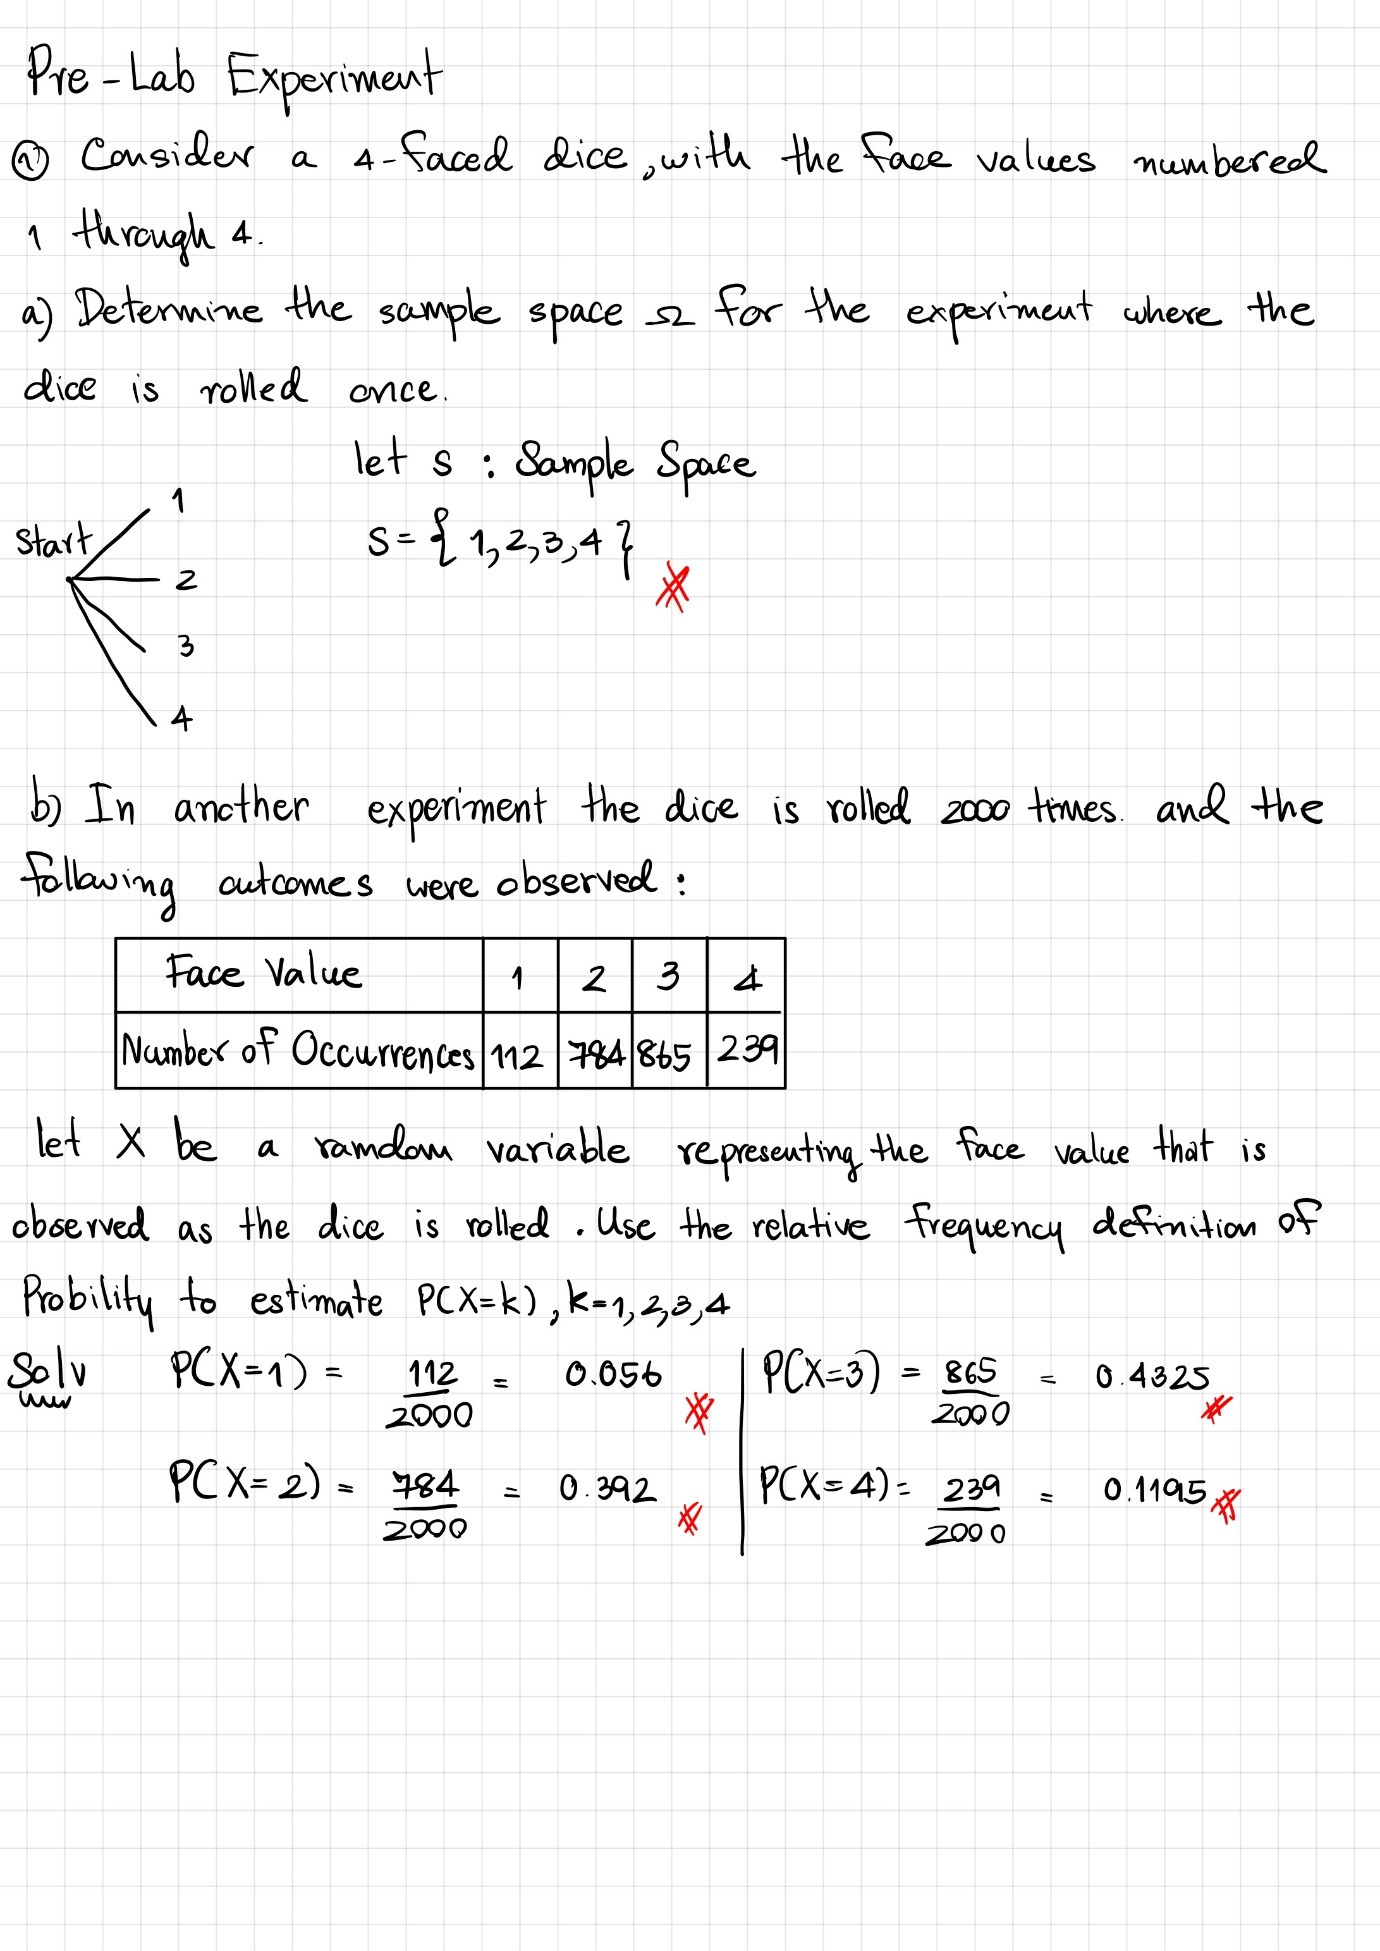 Pre-Lab Experiment
① Consider a 4-faced dice, with the face values numbered
1 through 4.
a) Determine the sample space Ω for the experiment where the
dice is rolled once.
let s : Sample Space
Start
1
2
3
4
S = { 1, 2, 3, 4 }
b) In another experiment the dice is rolled 2000 times. and the
following outcomes were observed :
Face Value 1 2 3 4
Number of Occurrences 112 784 865 239
let X be a ramdom variable representing the face value that is
observed as the dice is rolled. Use the relative frequency definition of
Probility to estimate P(X=k), k=1, 2, 3, 4
Solv P(X=1) = 112/2000 = 0.056
P(X=2) = 784/2000 = 0.392
P(X=3) = 865/2000 = 0.4325
P(X=4) = 239/2000 = 0.1195